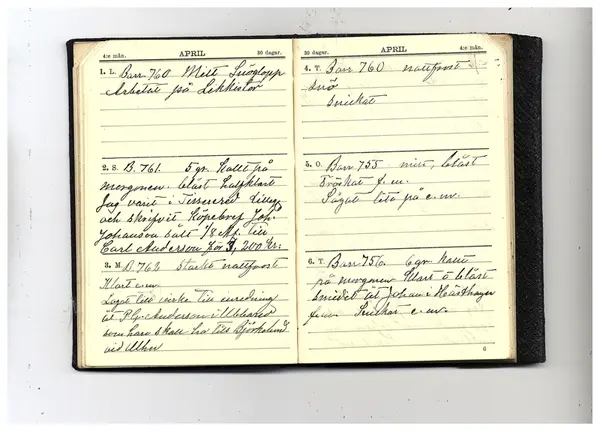 4:e mån. APRIL 30 dagar.
1. L. Barr 760 Milt Snöglopp
Arbetet på Likkistor
2. S. B. 761. 5 gr. kallt på
morgonen. blåst halfklart
Jag varit i
och skrifvit Köpebref Joh.
Johanson sålt 1/8 Mf. till
Carl Anderson för 3,200 Kr:
3. M. B. 762 starkt nattfrost
Klart e.m.
Lagat till virke till inredning
åt P.G. Anderson i
som han skall ha till Björkelund
vid
30 dagar. APRIL 4:e mån.
4. T. Barr 760 nattfrost
snö
Snickat
5. O. Barr 755 mitt, blåst
Tröskat f.m.
Sågat lite på e.m.
6. T. Barr 756. 6 gr. kallt
på morgonen Klart o blåst
smidet åt Johan i Hästhagen
f.m. Snickat e.m.
6